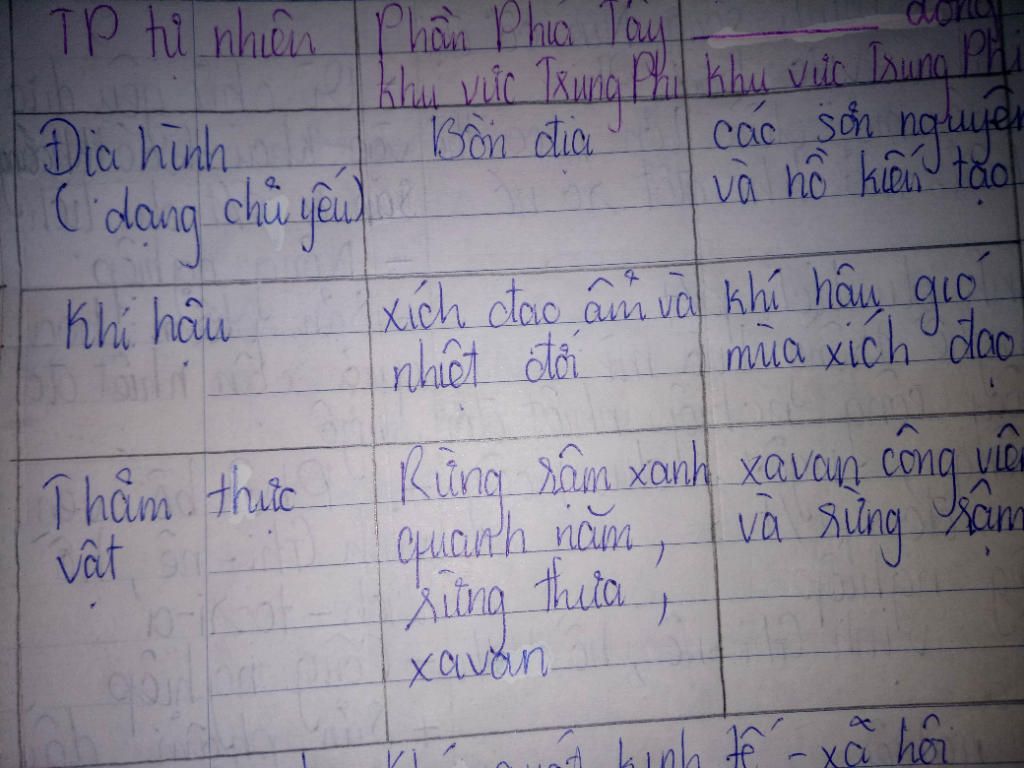 TP tự nhiên
Phần Phía Tây
khu vực Trung Phi
đông
khu vực Trung Phi
Địa hình
(dạng chủ yếu)
Bồn địa
các sơn nguyên
và hồ kiến tạo
Khí hậu
xích đạo ẩm và
nhiệt đới
khí hậu gió
mùa xích đạo
Thảm thực
vật
Rừng rậm xanh
quanh năm,
rừng thưa,
xavan
xavan công viên
và rừng rậm
kinh tế - xã hội